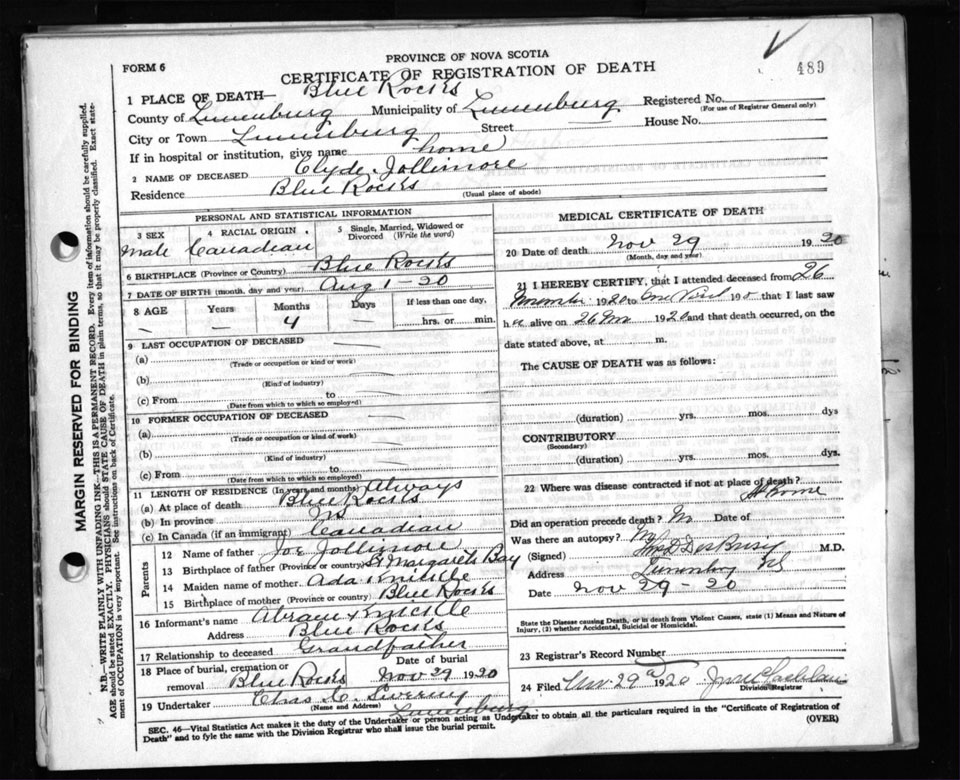 489
FORM 6
PROVINCE OF NOVA SCOTIA
CERTIFICATE OF REGISTRATION OF DEATH
1 PLACE OF DEATH— Blue Rocks
County of Lunenburg Municipality of Lunenburg Registered No.
(For use of Registrar General only)
City or Town Lunenburg Street House No.
If in hospital or institution, give name home
2 NAME OF DECEASED Clyde Jollimore
Residence Blue Rocks
(Usual place of abode)
PERSONAL AND STATISTICAL INFORMATION
3 SEX 4 RACIAL ORIGIN 5 Single, Married, Widowed or Divorced (Write the word)
Male Canadian
6 BIRTHPLACE (Province or Country) Blue Rocks
7 DATE OF BIRTH (month, day and year) Aug 1 - 20
8 AGE Years Months Days If less than one day,
4 hrs. or min.
9 LAST OCCUPATION OF DECEASED
(a)
(Trade or occupation or kind or work)
(b)
(Kind of industry)
(c) From to
(Date from which to which so employed)
10 FORMER OCCUPATION OF DECEASED
(a)
(Trade or occupation or kind of work)
(b)
(Kind of industry)
(c) From to
(Date from which to which so employed)
11 LENGTH OF RESIDENCE (In years and months) Always
(a) At place of death Blue Rocks
(b) In province NS
(c) In Canada (if an immigrant) Canadian
Parents
12 Name of father Joe Jollimore
13 Birthplace of father (Province or country) St Margarets Bay
14 Maiden name of mother Ada
15 Birthplace of mother (Province or country) Blue Rocks
16 Informant's name Abram
Address Blue Rocks
17 Relationship to deceased Grandfather
18 Place of burial, cremation or removal Blue Rocks Date of burial Nov 29 1920
19 Undertaker Chas C.
(Name and Address) Lunenburg
MEDICAL CERTIFICATE OF DEATH
20 Date of death Nov 29 1920
(Month, day and year)
21 I HEREBY CERTIFY, that I attended deceased from 26
November 1920 to 19 that I last saw
h alive on 26 1920 and that death occurred, on the
date stated above, at m.
The CAUSE OF DEATH was as follows:
(duration) yrs. mos. dys
CONTRIBUTORY
(Secondary)
(duration) yrs. mos. dys
22 Where was disease contracted if not at place of death?
At home
Did an operation precede death? No Date of
Was there an autopsy? No
(Signed) M.D.
Address Lunenburg NS
Date Nov 29 - 20
State the Disease causing Death, or in death from Violent Causes, state (1) Means and Nature of
Injury, (2) whether Accidental, Suicidal or Homicidal.
23 Registrar's Record Number
24 Filed Nov. 29 1920
Division Registrar
SEC. 46—Vital Statistics Act makes it the duty of the Undertaker or person acting as Undertaker to obtain all the particulars required in the "Certificate of Registration of
Death" and to fyle the same with the Division Registrar who shall issue the burial permit. (OVER)
MARGIN RESERVED FOR BINDING
N.B.—WRITE PLAINLY WITH UNFADING INK—THIS IS A PERMANENT RECORD. Every item of information should be carefully supplied.
AGE should be stated EXACTLY. PHYSICIANS should STATE CAUSE OF DEATH in plain terms, so that it may be properly classified. Exact state-
ment of OCCUPATION is very important. See instructions on back of Certificate.